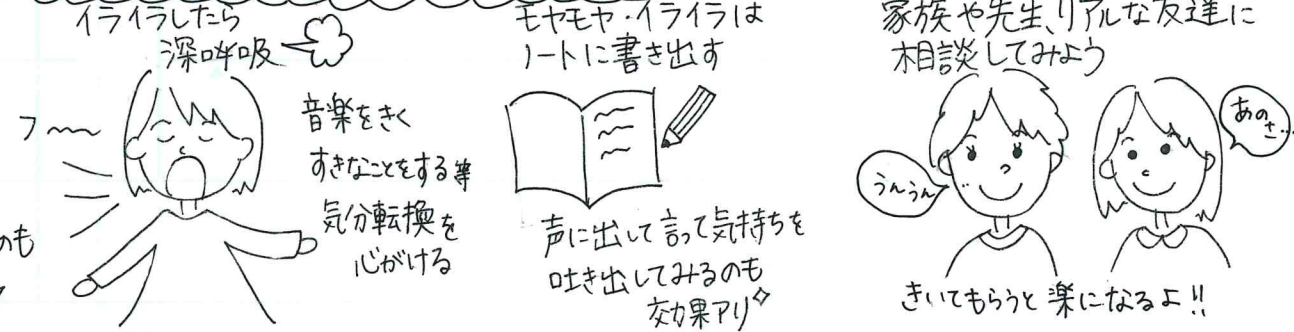 イライラしたら
深呼吸
フ〜〜
音楽をきく
すきなことをする等
気分転換を
心がける
のも
モヤモヤ・イライラは
ノートに書き出す
声に出して言って気持ちを
吐き出してみるのも
効果アリ
家族や先生、リアルな友達に
相談してみよう
うんうん
あの
さ…
きいてもらうと楽になるよ!!